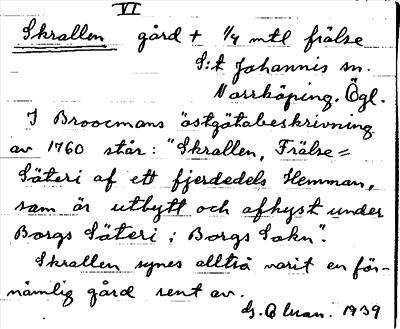 VI
Skrallen gård + 1/4 mtl frälse
S:t Johannis sn.
Norrköping. Ögl.
I Broocmans östgötabeskrivning
av 1760 står: "Skrallen, Frälse=
Säteri af ett fjerdedels Hemman,
som är utbytt och afhyst under
Borgs Säteri i Borgs Sokn".
Skrallen synes alltså varit en för-
nämlig gård rent av.
1939